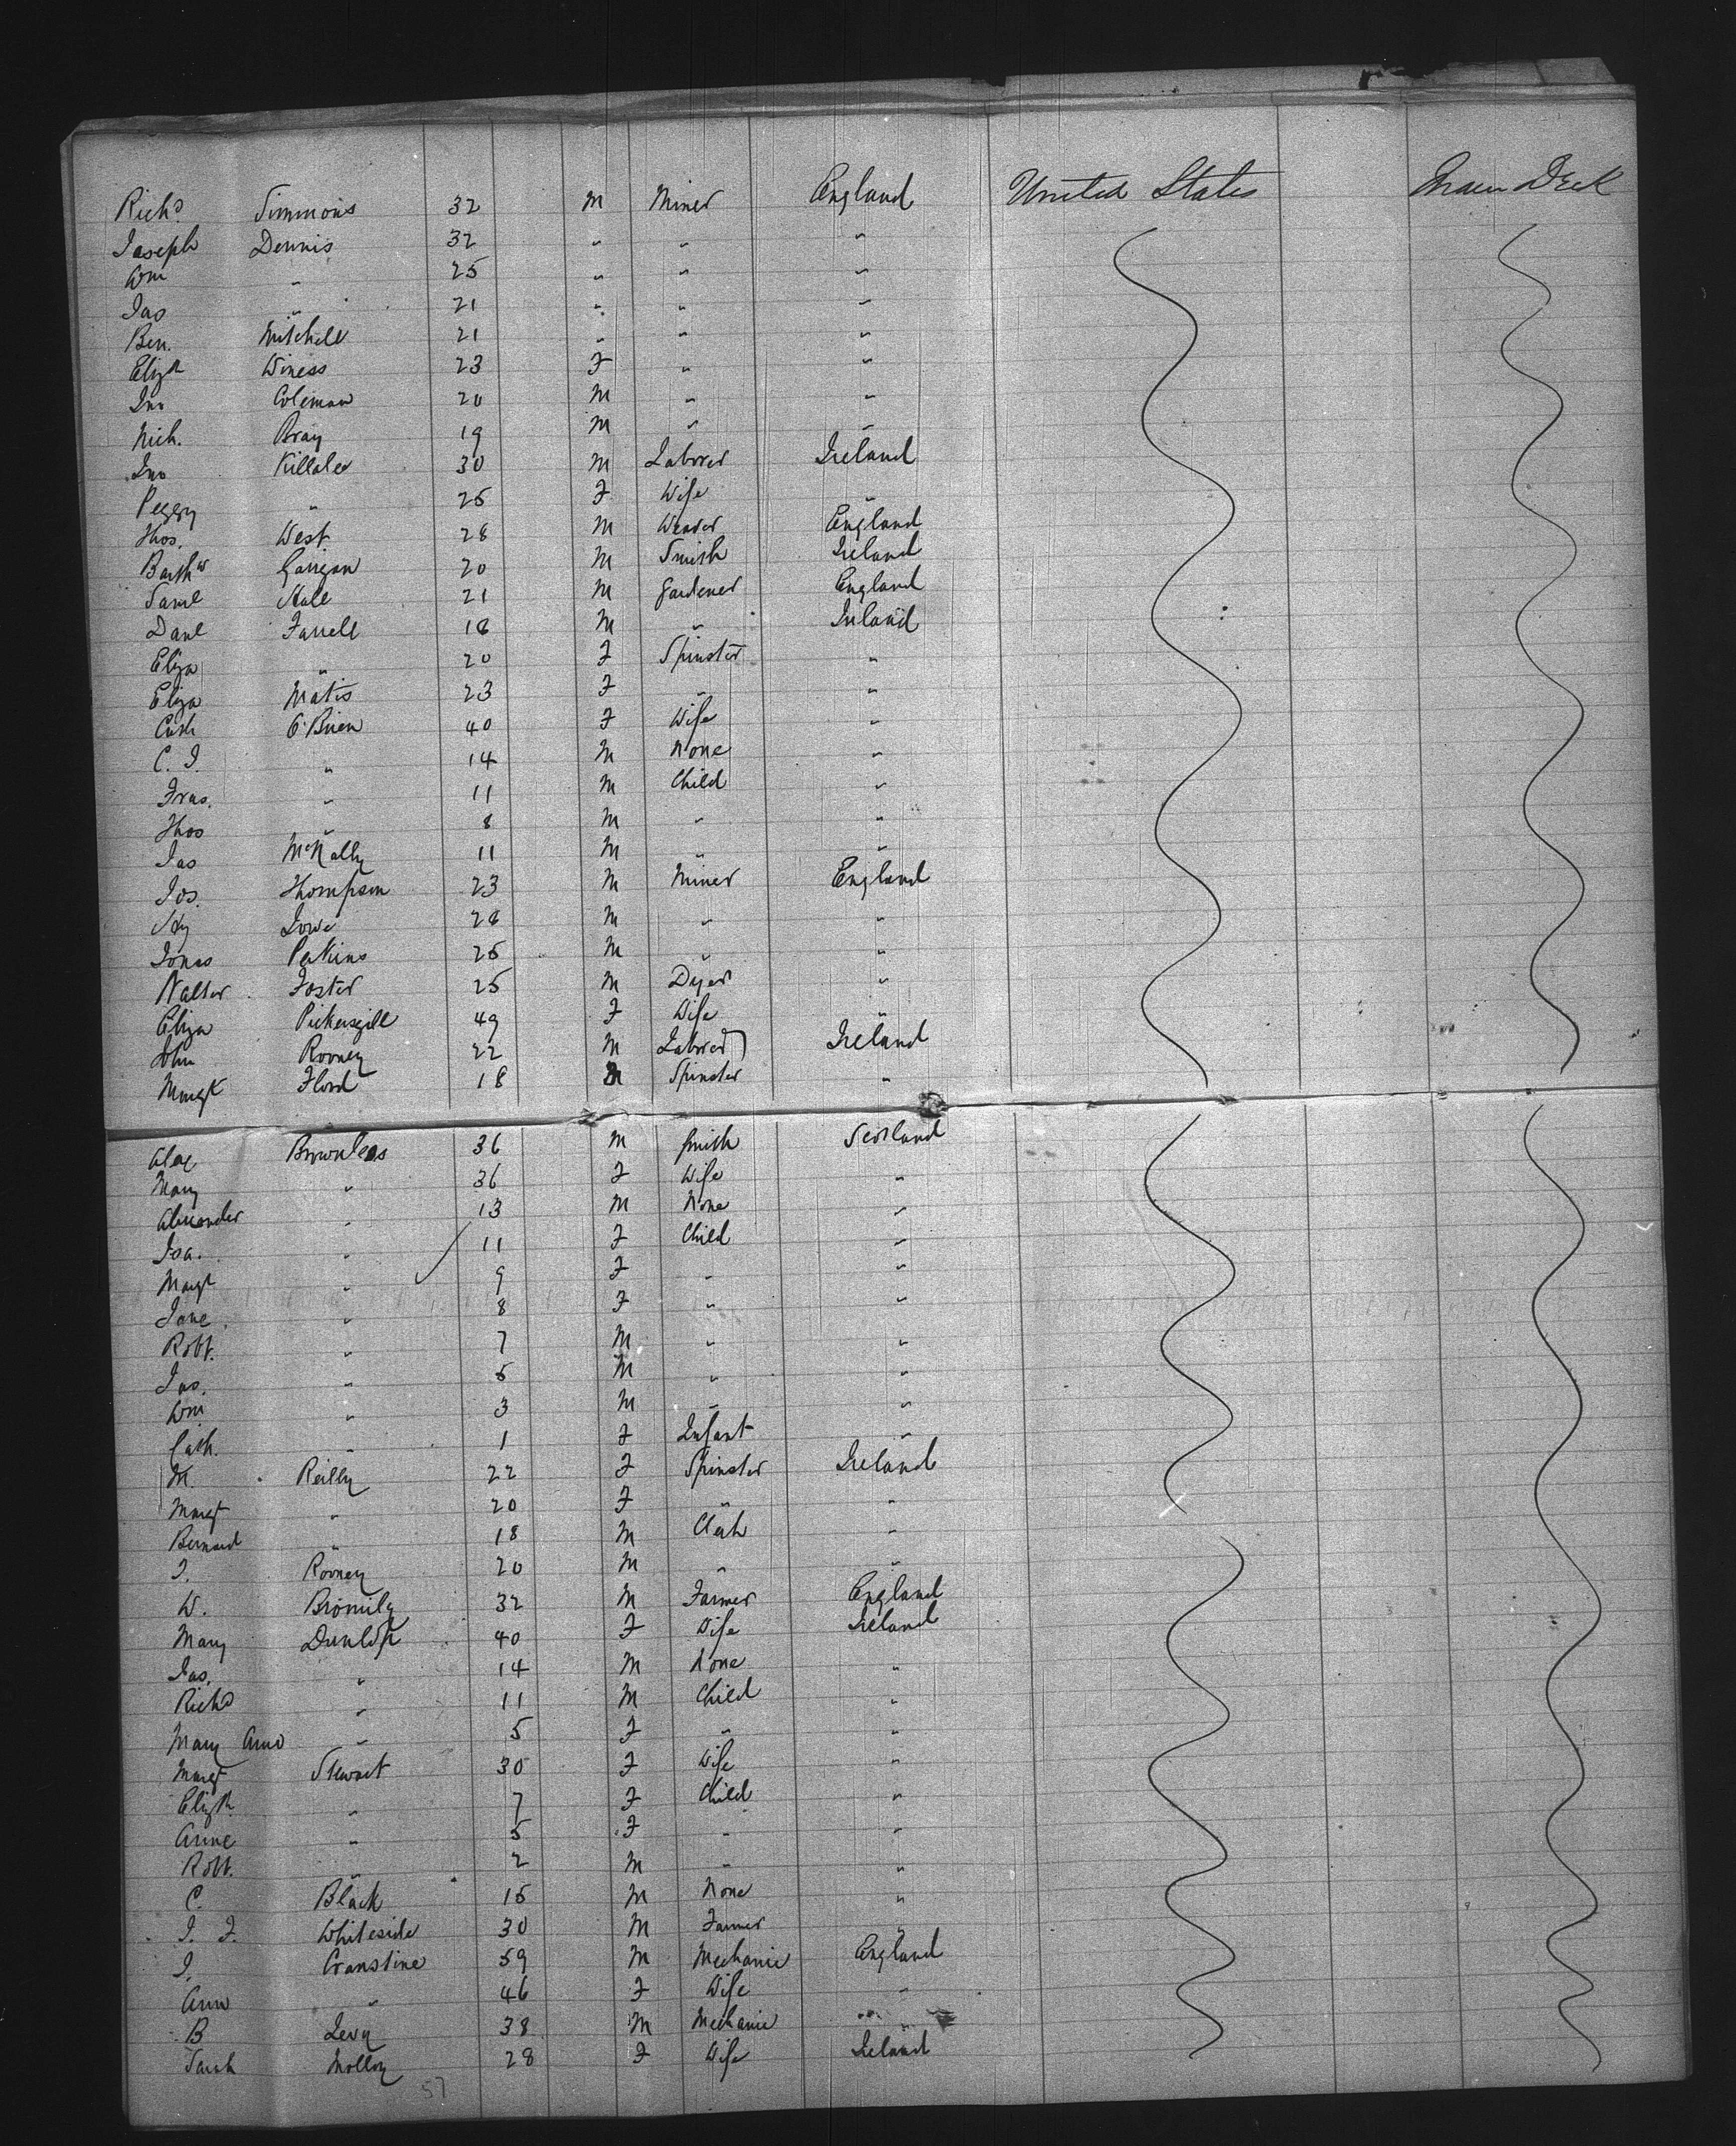 Richd Simmons 32 M Miner England United States Main Deck
Joseph Dennis 32 " " "
Wm " 25 " " "
Jas " 21 " " "
Ben. Mitchell 21 " " "
Elizh Winess 23 F " "
Jno Coleman 20 M " "
Nich. Bray 19 M " "
Jno Killalea 30 M Laborer Ireland
Peggy " 25 F Wife "
Thos. West 28 M Weaver England
Barthw Garrigan 20 M Smith Ireland
Saml Hall 21 M Gardener England
Danl Farrell 18 M " Ireland
Eliza " 20 F Spinster "
Eliza Matis 23 F " "
Cath O'Brien 40 F Wife "
C. J. " 14 M None "
Fras. " 11 M Child "
Thos " 8 M " "
Jas McNally 11 M " "
Jos. Thompson 23 M Miner England
Hy Lowe 28 M " "
Jonas Perkins 25 M " "
Walter Foster 25 M Dyer "
Eliza Pickersgill 49 F Wife "
John Rooney 22 M Laborer Ireland
Margt Flood 18 Spinster "
Alex Brownlees 36 M Smith Scotland
Mary " 36 F Wife "
Alexander " 13 M None "
Isa. " 11 F Child "
Margt " 9 F " "
Jane " 8 F " "
Robt. " 7 M " "
Jas. " 5 M " "
Wm " 3 M " "
Cath. " 1 F Infant "
M. Reilly 22 F Spinster Ireland
Margt " 20 F " "
Bernard " 18 M Clerk "
J. Rooney 20 M " "
W. Bromily 32 M Farmer England
Mary Dunlop 40 F Wife Ireland
Jas. " 14 M None "
Richd " 11 M Child "
Mary Ann " 5 F " "
Margt Stewart 30 F Wife "
Elizh. " 7 F Child "
Anne " 5 F " "
Robt. " 2 M " "
C. Black 15 M None "
J. F. Whiteside 30 M Farmer "
J. Cranstine 59 M Mechanic England
Ann " 46 F Wife "
B Levy 38 M Mechanic "
Sarah Molloy 28 F Wife Ireland
57